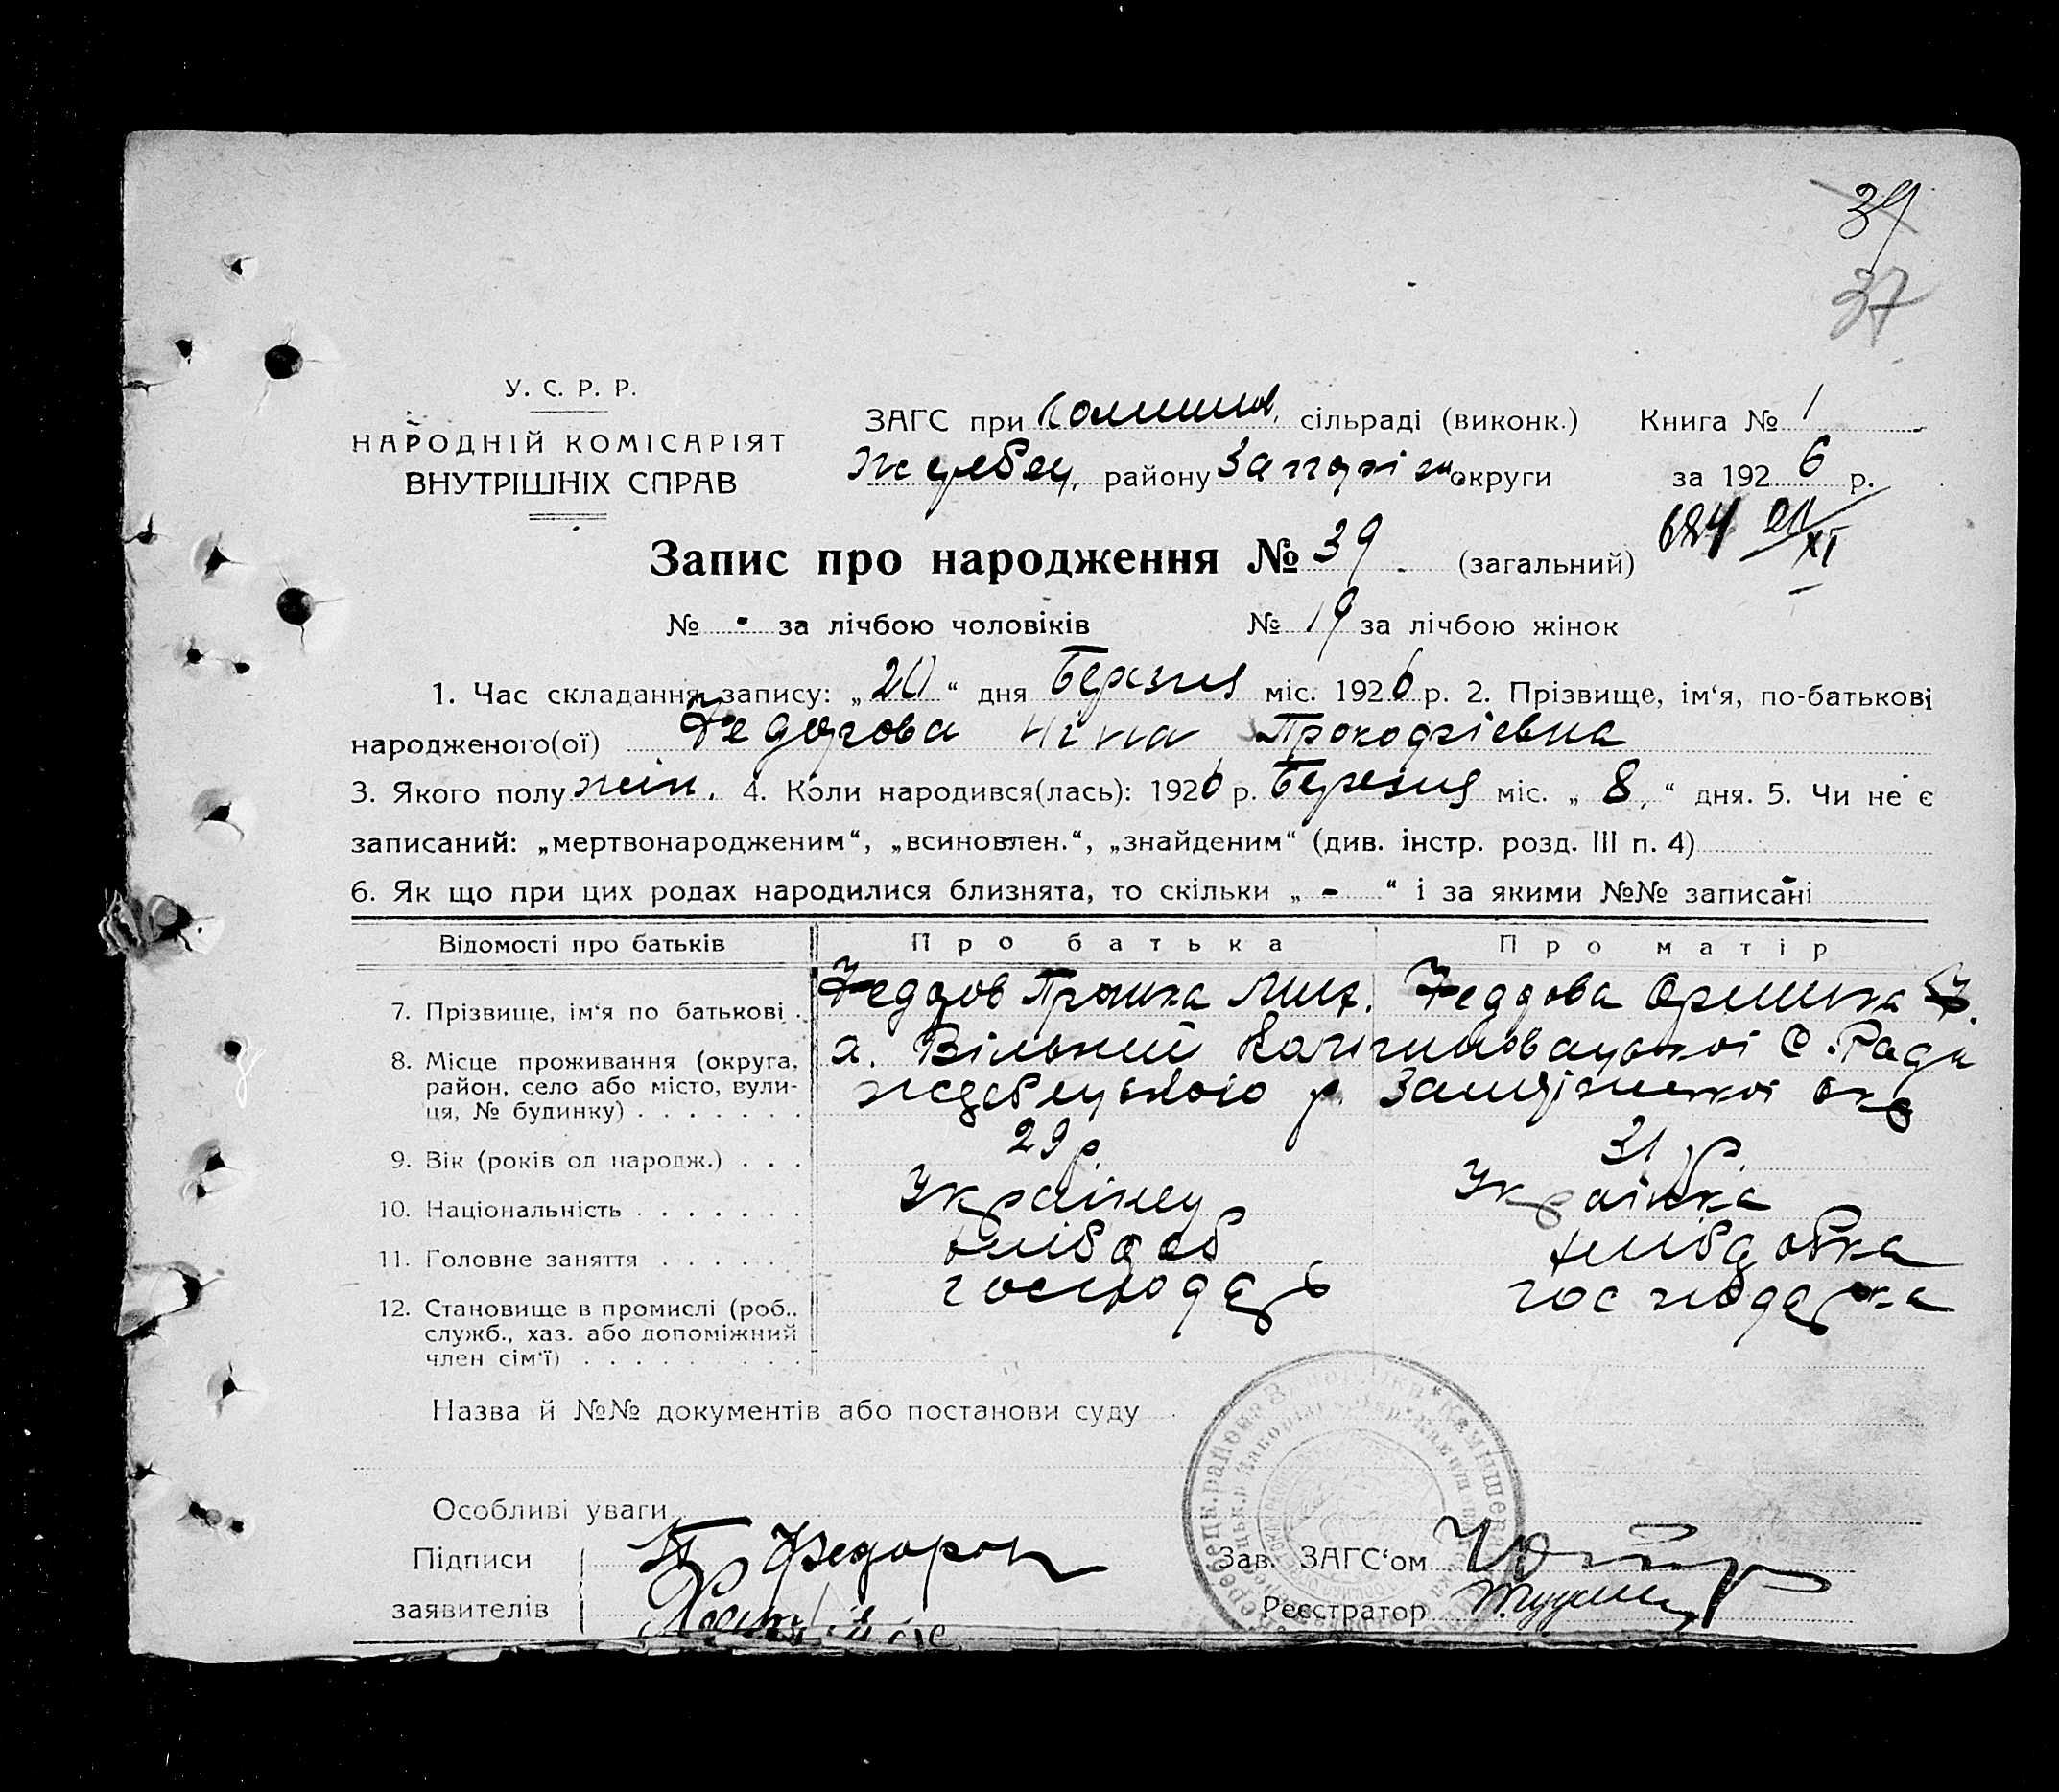 39
37
У. С. Р. Р.
НАРОДНІЙ КОМІСАРІЯТ
ВНУТРІШНІХ СПРАВ
ЗАГС при сільраді (виконк.) Книга № 1
Жеребец, району Запоріж округи за 192 6 р.
684 21/XI
Запис про народження № 39 (загальний)
№ - за лічбою чоловіків № 19 за лічбою жінок
1. Час складання запису: „20“ дня Березня міс. 1926 р. 2. Прізвище, ім‘я, по-батькові
народженого(ої) Федорова Ніна
3. Якого полу жін. 4. Коли народився(лась): 1926 р. Березня міс. „8“ дня. 5. Чи не є
записаний: „мертвонародженим“, „всиновлен.“, „знайденим“ (див. інстр. розд. III п. 4)
6. Як що при цих родах народилися близнята, то скільки „-“ і за якими №№ записані -
Відомості про батьків Про батька Про матір
7. Прізвище, ім‘я по батькові Федоров Федорова
8. Місце проживання (округа, х. Вільний С. Ради
район, село або місто, вули- р.
ця, № будинку)
9. Вік (років од народж.) 29 р. 31 р.
10. Національність Українец Українка
11. Головне заняття хлібороб
12. Становище в промислі (роб., господарь господарка
служб., хаз. або допоміжний
член сім‘ї)
Назва й №№ документів або постанови суду
Особливі уваги
Підписи П Федоров Зав. ЗАГС‘ом
заявителів Реєстратор